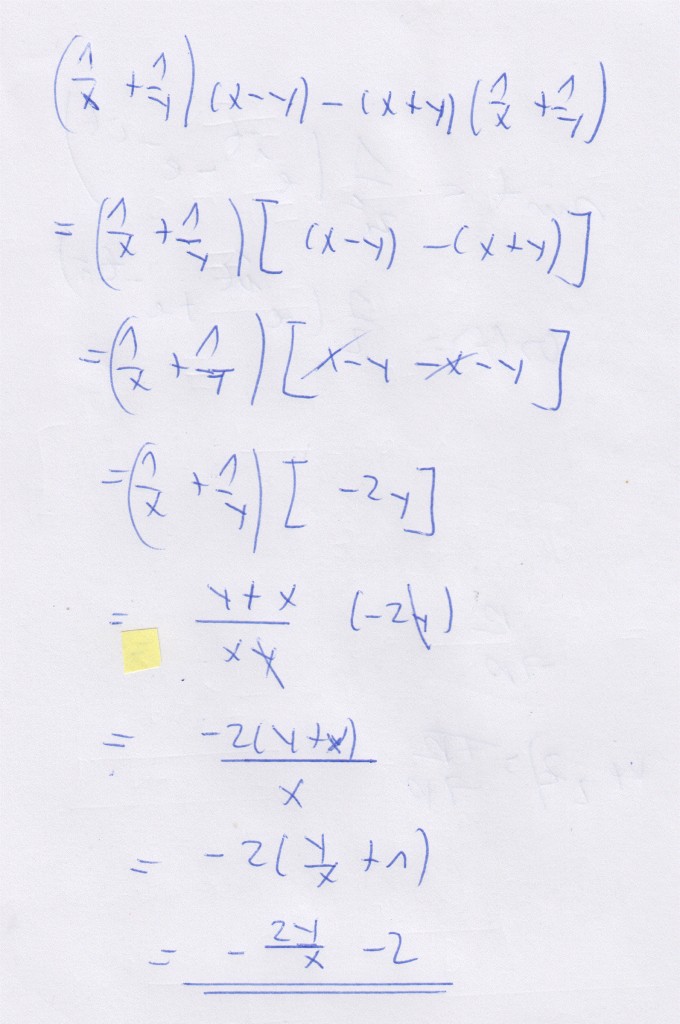 (1/x + 1/y) (x-y) - (x+y) (1/x + 1/y)
= (1/x + 1/y) [ (x-y) -(x+y) ]
= (1/x + 1/y) [ x-y -x-y ]
= (1/x + 1/y) [ -2y ]
= (y+x)/(xy) (-2y)
= -2(y+x)/x
= -2( y/x +1)
= - 2y/x -2